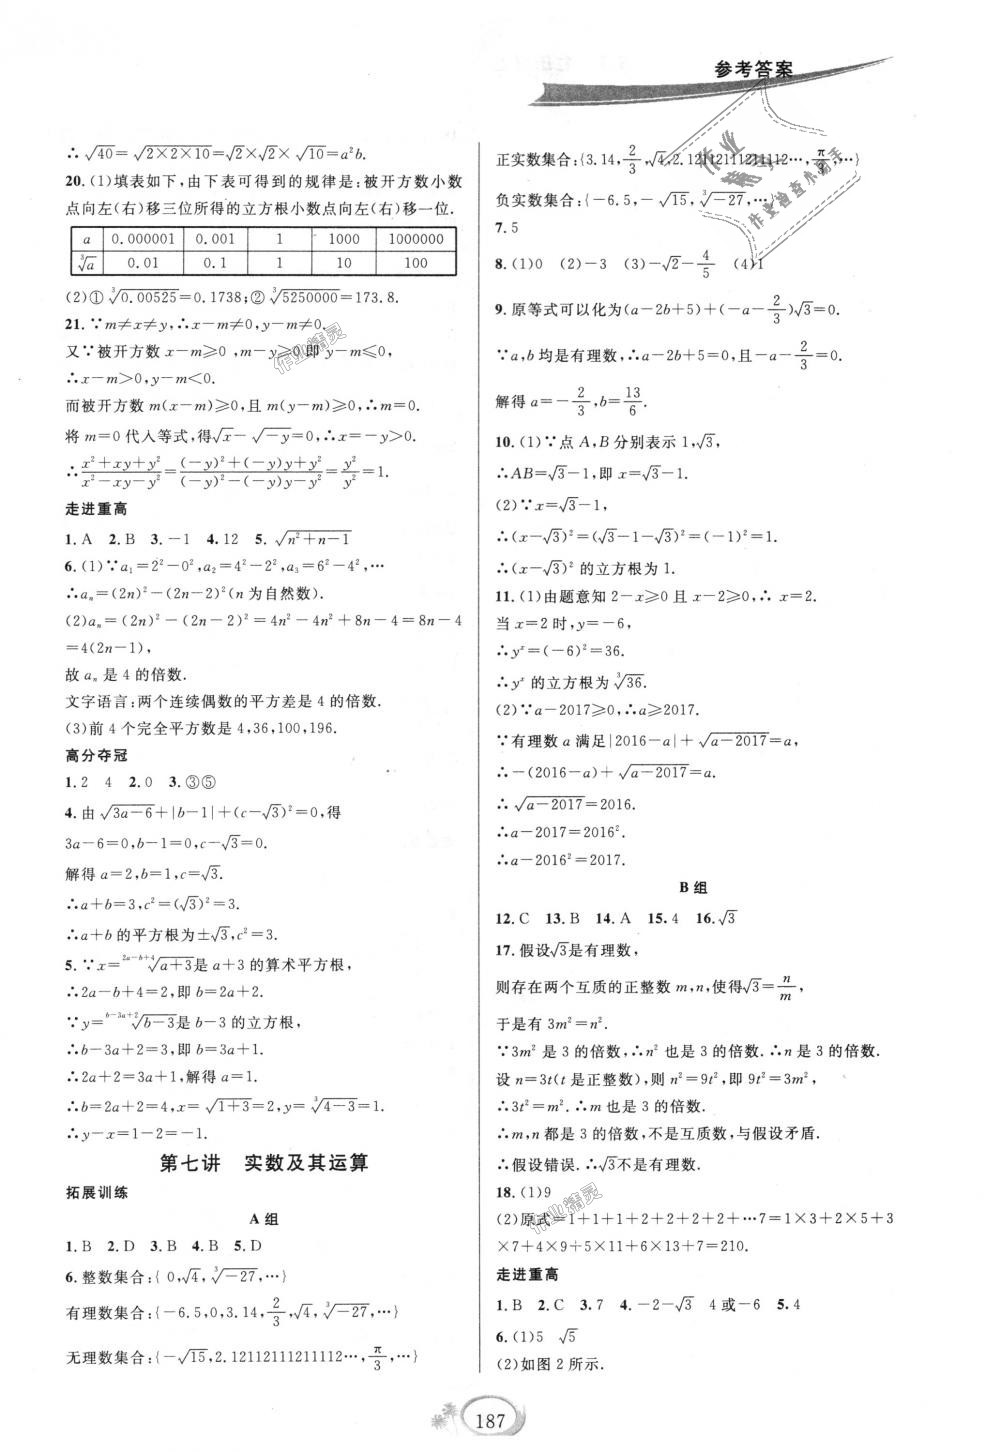 参考答案
∴√40=√(2×2×10)=√2×√2×√10=a²b.
20.(1)填表如下,由下表可得到的规律是:被开方数小数
点向左(右)移三位所得的立方根小数点向左(右)移一位.
a 0.000001 0.001 1 1000 1000000
∛a 0.01 0.1 1 10 100
(2)①∛0.00525=0.1738;②∛5250000=173.8.
21.∵m≠x≠y,∴x-m≠0,y-m≠0.
又∵被开方数 x-m≥0,m-y≥0 即 y-m≤0,
∴x-m>0,y-m<0.
而被开方数 m(x-m)≥0,且 m(y-m)≥0,∴m=0.
将 m=0 代入等式,得√x-√(-y)=0,∴x=-y>0.
∴(x²+xy+y²)/(x²-xy-y²)=((-y)²+(-y)y+y²)/((-y)²-(-y)y-y²)=y²/y²=1.
走进重高
1.A 2.B 3.-1 4.12 5.√(n²+n-1)
6.(1)∵a₁=2²-0²,a₂=4²-2²,a₃=6²-4²,…
∴aₙ=(2n)²-(2n-2)²(n 为自然数).
(2)aₙ=(2n)²-(2n-2)²=4n²-4n²+8n-4=8n-4
=4(2n-1),
故 aₙ 是 4 的倍数.
文字语言:两个连续偶数的平方差是 4 的倍数.
(3)前 4 个完全平方数是 4,36,100,196.
高分夺冠
1.2 4 2.0 3.③⑤
4.由√(3a-6)+|b-1|+(c-√3)²=0,得
3a-6=0,b-1=0,c-√3=0.
解得 a=2,b=1,c=√3.
∴a+b=3,c²=(√3)²=3.
∴a+b 的平方根为±√3,c²=3.
5.∵x=²ᵃ⁻ᵇ⁺⁴√(a+3)是 a+3 的算术平方根,
∴2a-b+4=2,即 b=2a+2.
∵y=ᵇ⁻³ᵃ⁺²√(b-3)是 b-3 的立方根,
∴b-3a+2=3,即 b=3a+1.
∴2a+2=3a+1,解得 a=1.
∴b=2a+2=4,x=√(1+3)=2,y=∛(4-3)=1.
∴y-x=1-2=-1.
第七讲 实数及其运算
拓展训练
A 组
1.B 2.D 3.B 4.B 5.D
6.整数集合:{ 0,√4,∛-27,…}
有理数集合:{-6.5,0,3.14,2/3,√4,∛-27,…}
无理数集合:{-√15,2.12112111211112…,π/3,…}
正实数集合:{3.14,2/3,√4,2.12112111211112…,π/3,…}
负实数集合:{-6.5,-√15,∛-27,…}
7.5
8.(1)0 (2)-3 (3)-√2-4/5 (4)1
9.原等式可以化为(a-2b+5)+(-a-2/3)√3=0.
∵a,b 均是有理数,∴a-2b+5=0,且-a-2/3=0.
解得 a=-2/3,b=13/6.
10.(1)∵点 A,B 分别表示 1,√3,
∴AB=√3-1,即 x=√3-1.
(2)∵x=√3-1,
∴(x-√3)²=(√3-1-√3)²=(-1)²=1.
∴(x-√3)² 的立方根为 1.
11.(1)由题意知 2-x≥0 且 x-2≥0,∴ x=2.
当 x=2 时,y=-6,
∴yˣ=(-6)²=36.
∴yˣ 的立方根为∛36.
(2)∵a-2017≥0,∴a≥2017.
∵有理数 a 满足|2016-a|+√(a-2017)=a,
∴-(2016-a)+√(a-2017)=a.
∴√(a-2017)=2016.
∴a-2017=2016².
∴a-2016²=2017.
B 组
12.C 13.B 14.A 15.4 16.√3
17.假设√3是有理数,
则存在两个互质的正整数 m,n,使得√3=n/m,
于是有 3m²=n².
∵3m² 是 3 的倍数,∴n² 也是 3 的倍数.∴n 是 3 的倍数.
设 n=3t(t 是正整数),则 n²=9t²,即 9t²=3m²,
∴3t²=m².∴m 也是 3 的倍数.
∴m,n 都是 3 的倍数,不是互质数,与假设矛盾.
∴假设错误.∴√3不是有理数.
18.(1)9
(2)原式=1+1+1+2+2+2+2+…7=1×3+2×5+3
×7+4×9+5×11+6×13+7=210.
走进重高
1.B 2.C 3.7 4.-2-√3 4 或-6 5.4
6.(1)5 √5
(2)如图 2 所示.
187
作业精灵
作业精灵
作业检查小助手
作业精灵